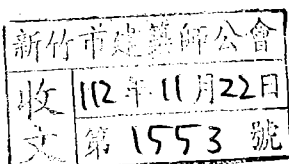 新竹市建築師公會
收文
112年11月22日
第1553號